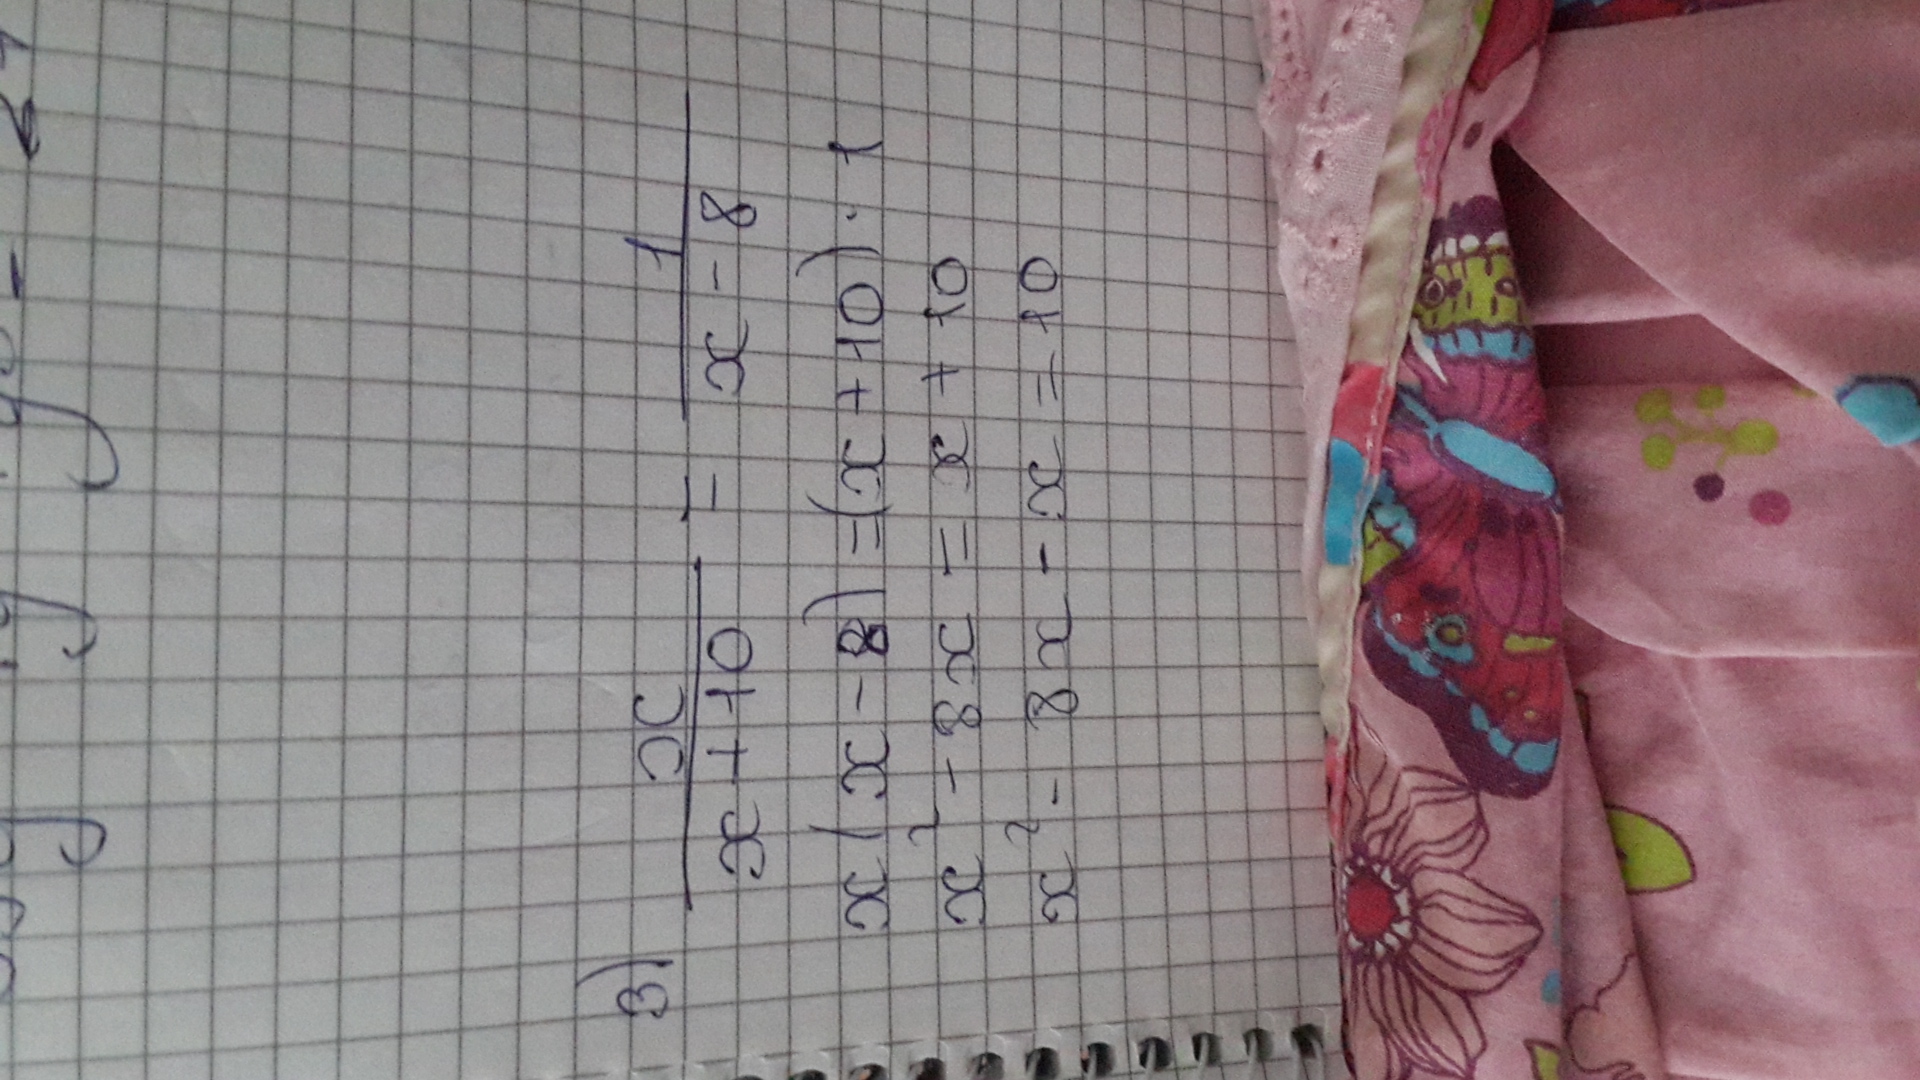 3) x / (x + 10) = 1 / (x - 8)
x(x - 8) = (x + 10) · 1
x² - 8x = x + 10
x² - 8x - x = 10